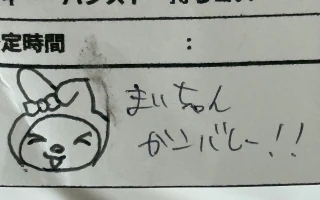 定時間 :
まいちゃん
ガンバレー!!